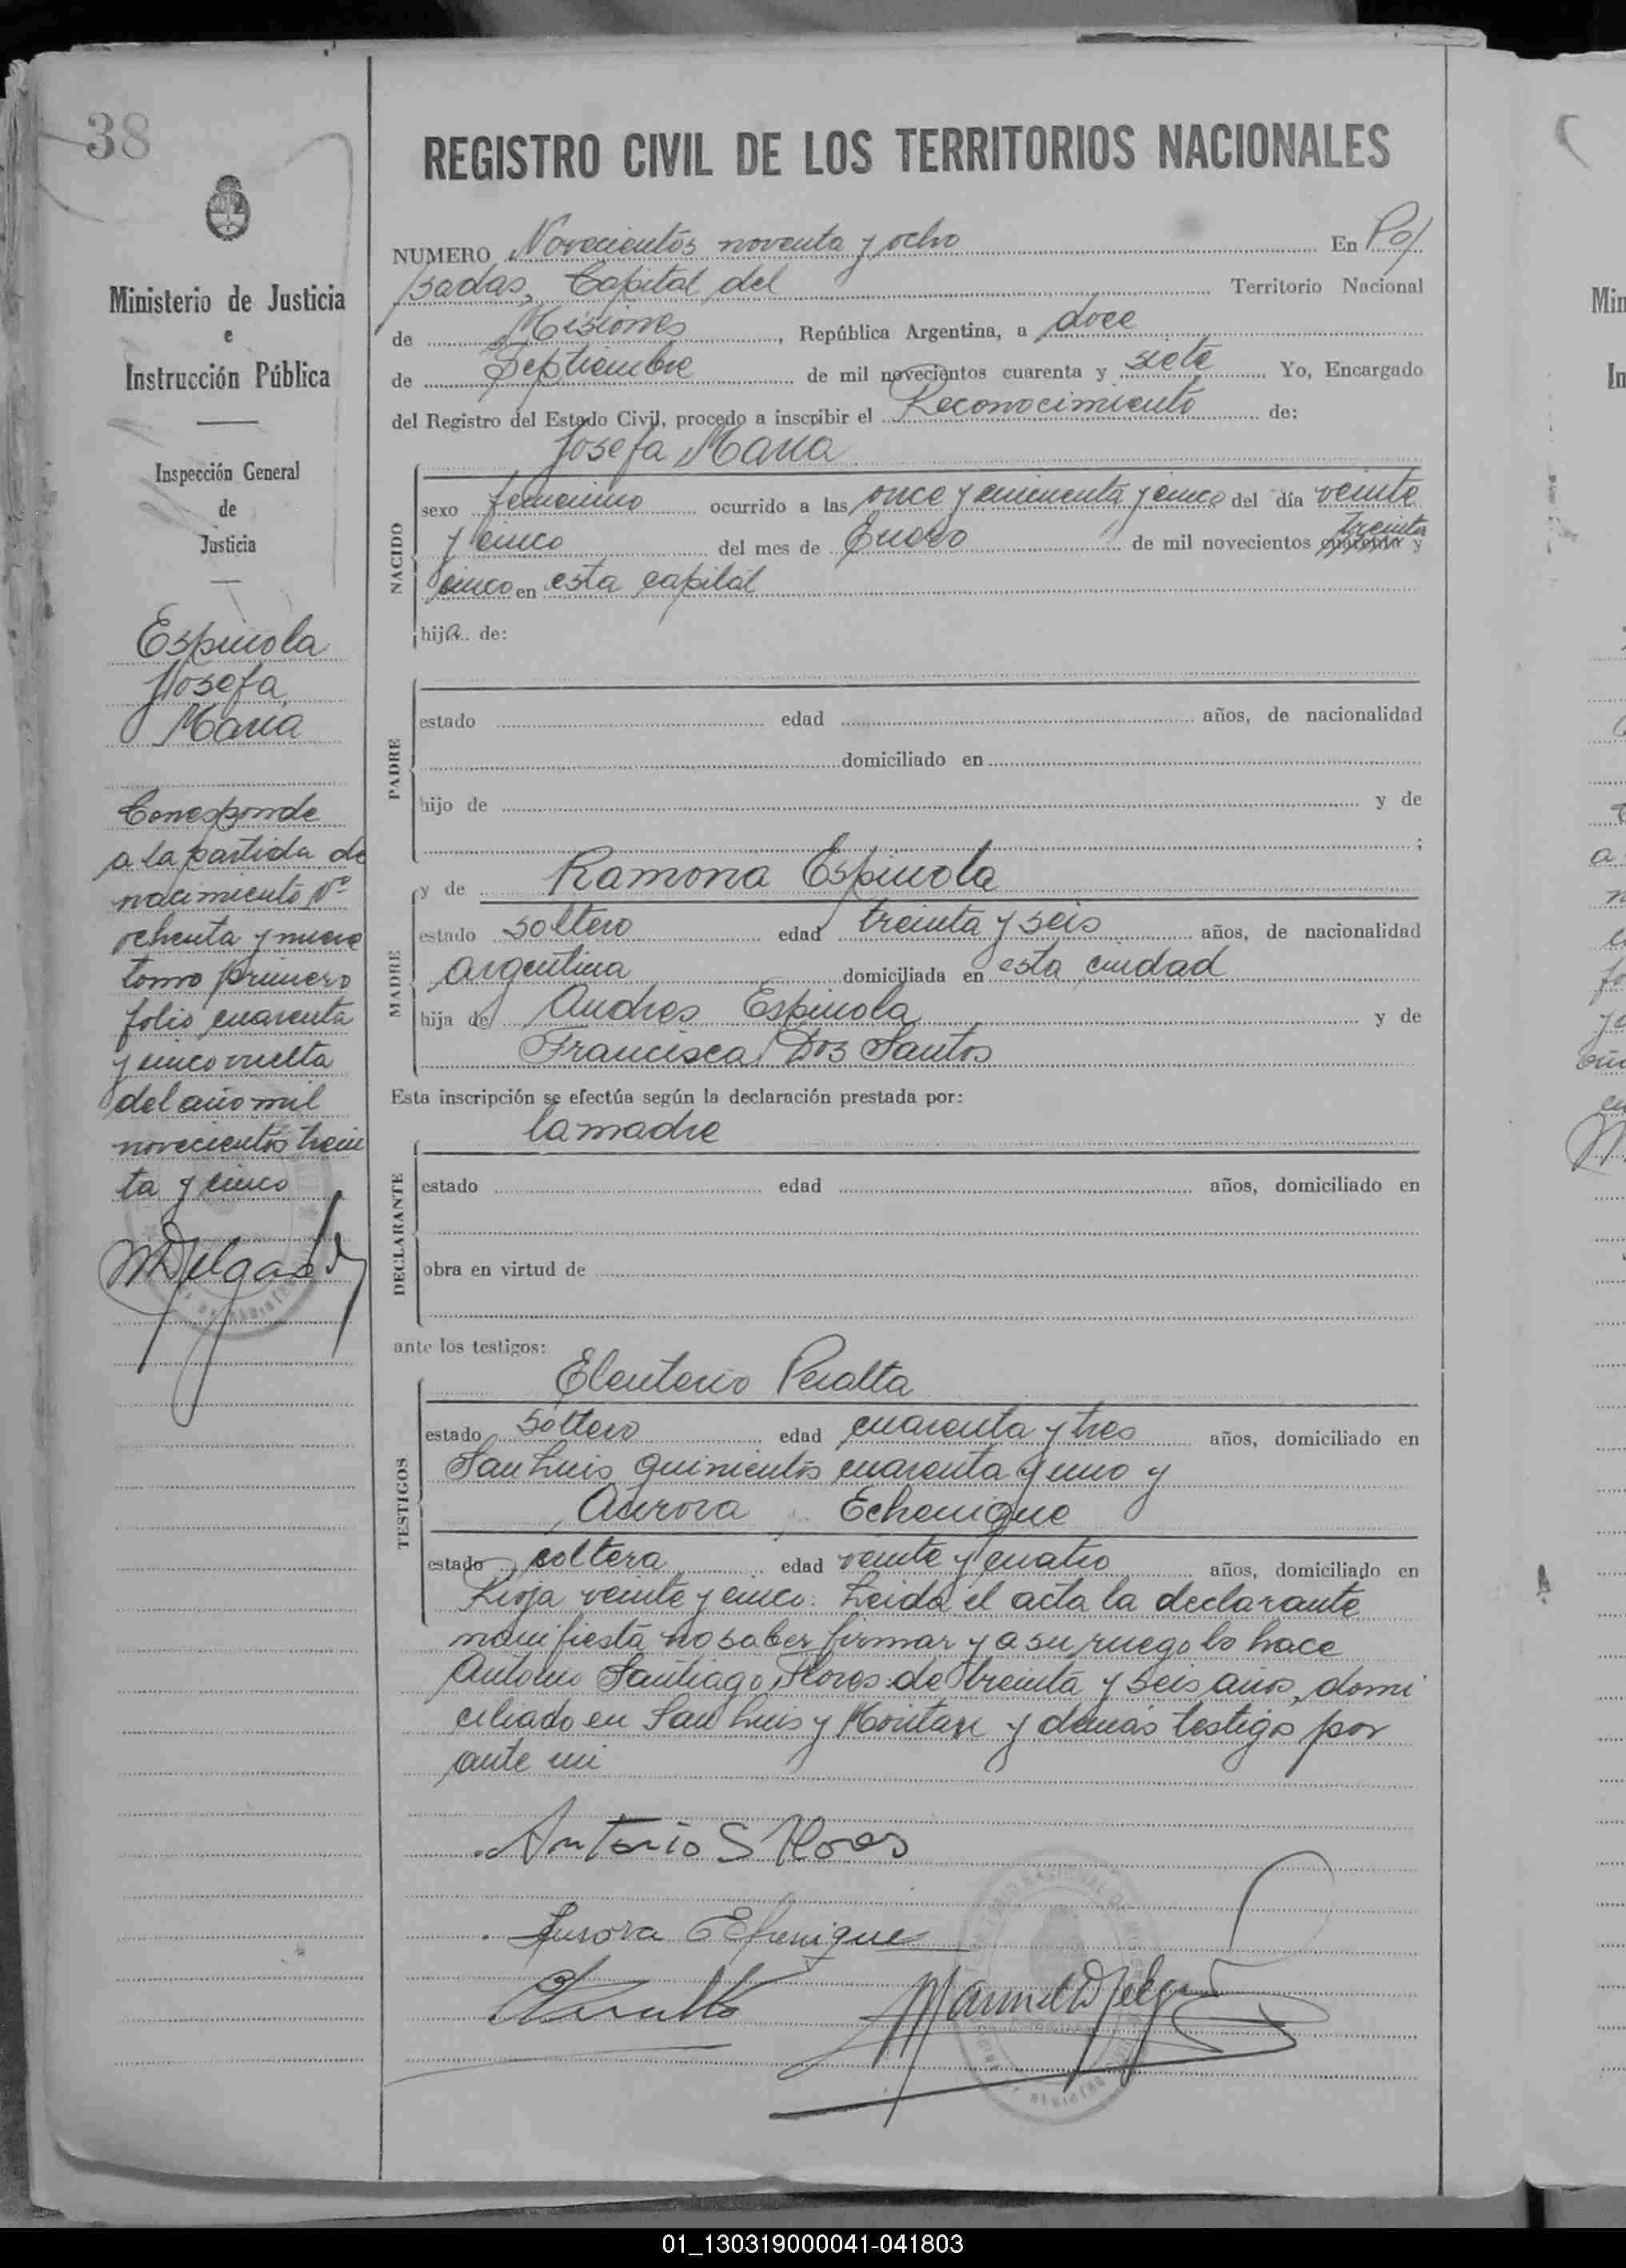 38
Ministerio de Justicia
e
Instrucción Pública
Inspección General
de
Justicia
Espinola
Josefa
Maria
Corresponde
a la partida de
nacimiento Nº
ochenta y nueve
tomo primero
folio cuarenta
y cinco vuelta
del año mil
novecientos trein
ta y cinco
MDelgado
REGISTRO CIVIL DE LOS TERRITORIOS NACIONALES
NUMERO Novecientos noventa y ocho En Po/
/sadas, Capital del Territorio Nacional
de Misiones, República Argentina, a doce
de Septiembre de mil novecientos cuarenta y siete Yo, Encargado
del Registro del Estado Civil, procedo a inscribir el Reconocimiento de:
Josefa Maria
NACIDO
sexo femenino ocurrido a las once y cincuenta y cinco del día veinte
y cinco del mes de Enero de mil novecientos cuarenta treinta y
cinco en esta capital
hija de:
PADRE
estado edad años, de nacionalidad
domiciliado en
hijo de y de
;
y de Ramona Espinola
MADRE
estado soltero edad treinta y seis años, de nacionalidad
argentina domiciliada en esta ciudad
hija de Andres Espinola y de
Francisca Dos Santos
Esta inscripción se efectúa según la declaración prestada por:
la madre
DECLARANTE
estado edad años, domiciliado en
obra en virtud de
ante los testigos:
Eleuterio Peralta
TESTIGOS
estado soltero edad cuarenta y tres años, domiciliado en
San Luis quinientos cuarenta y uno y
Aurora Echenique
estado soltera edad veinte y cuatro años, domiciliado en
Rioja veinte y cinco. Leida el acta la declarante
manifiesta no saber firmar y a su ruego lo hace
Antonio Santiago Flores de treinta y seis años, domi
ciliado en San Luis y y demás testigos por
ante mi
Antonio S Flores
Aurora Echenique
Manuel Delgado
01_130319000041-041803